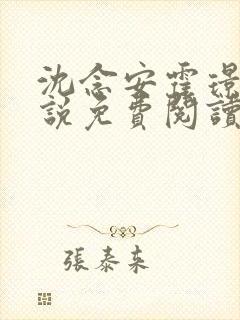 沈念安霆璟
說免費閱讀
張泰来